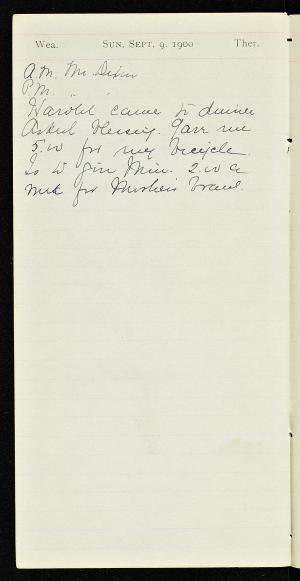 Wea. Sun. Sept. 9. 1900 Ther.
A.M. Mr Dixon
P.M. " "
Harold came to dinner
Asked Gave me
5.00 for my bicycle.
Is to give Min. 2.00 a
for Mother's